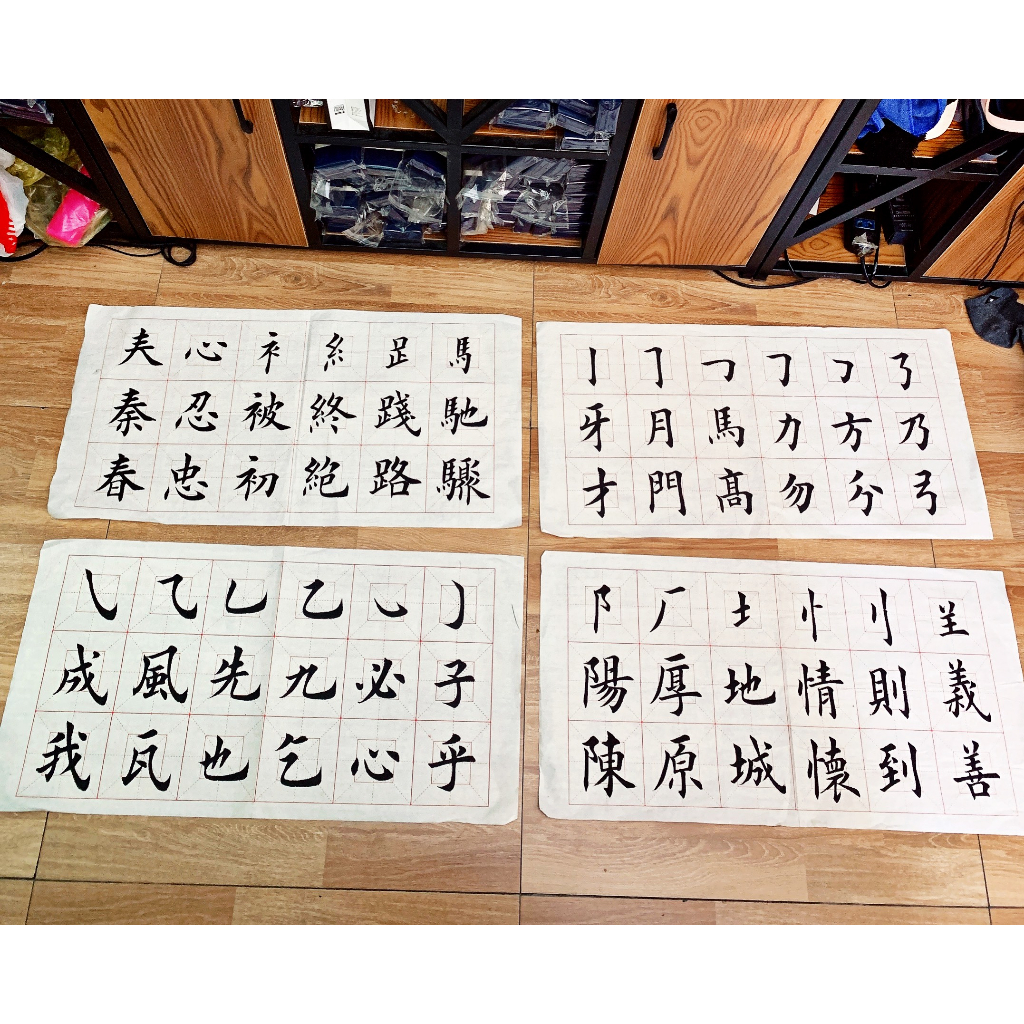 𡗗心衤糹𧾷馬
秦忍被終踐馳
春忠初絕路驟
亅𠃌㇖㇆㇇㇡
牙月馬力方乃
才門高勿分弓
㇂⺄乚乙㇃㇁
成風先九必子
我瓦也乞心乎
阝厂土忄刂𦍌
陽厚地情則義
陳原城懷到善